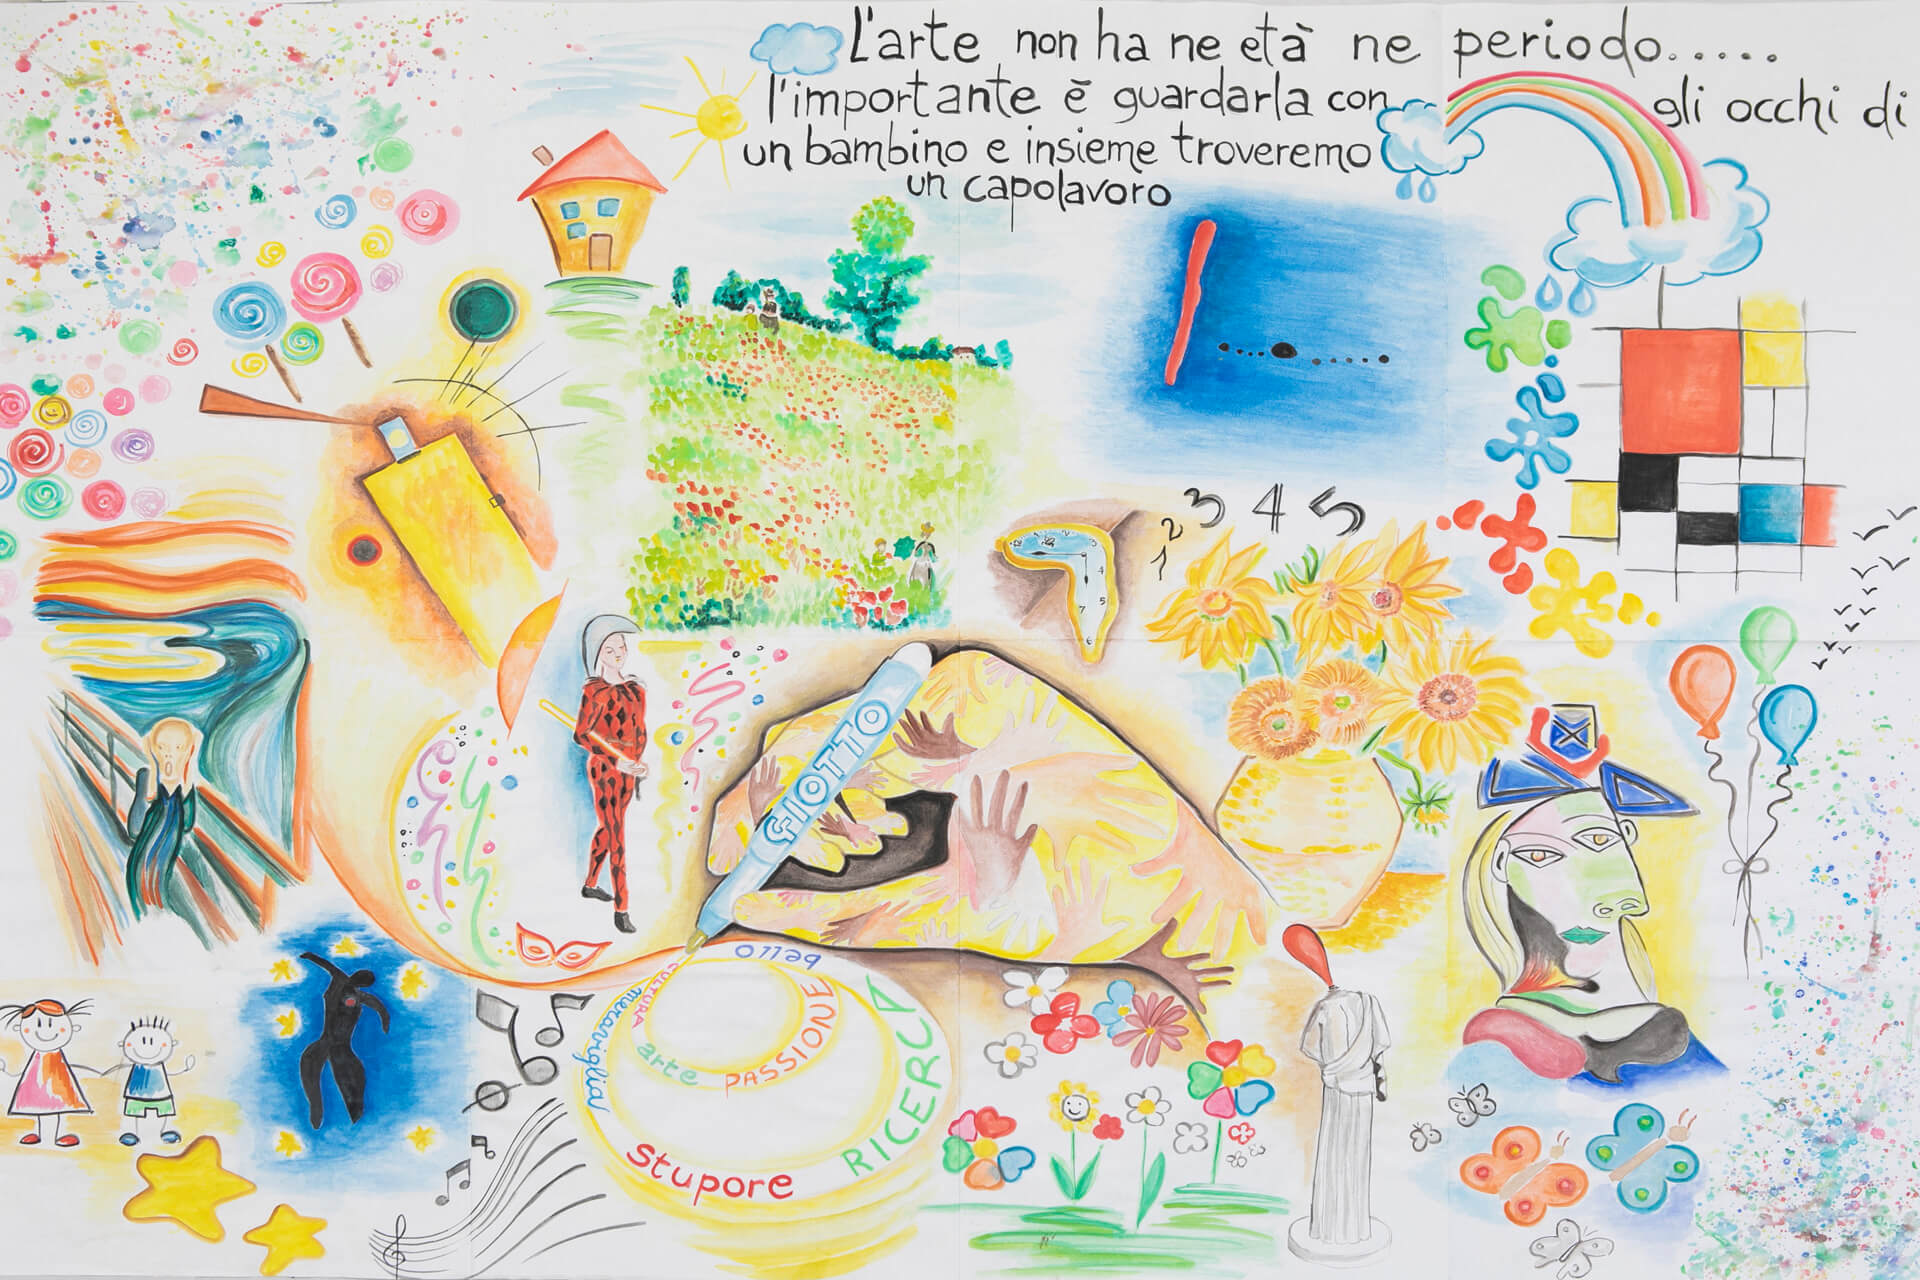 L'arte non ha ne età ne periodo.....
l'importante è guardarla con gli occhi di
un bambino e insieme troveremo
un capolavoro
1 2 3 4 5
GIOTTO
bello
CULTURA
meraviglia
arte
PASSIONE
RICERCA
stupore